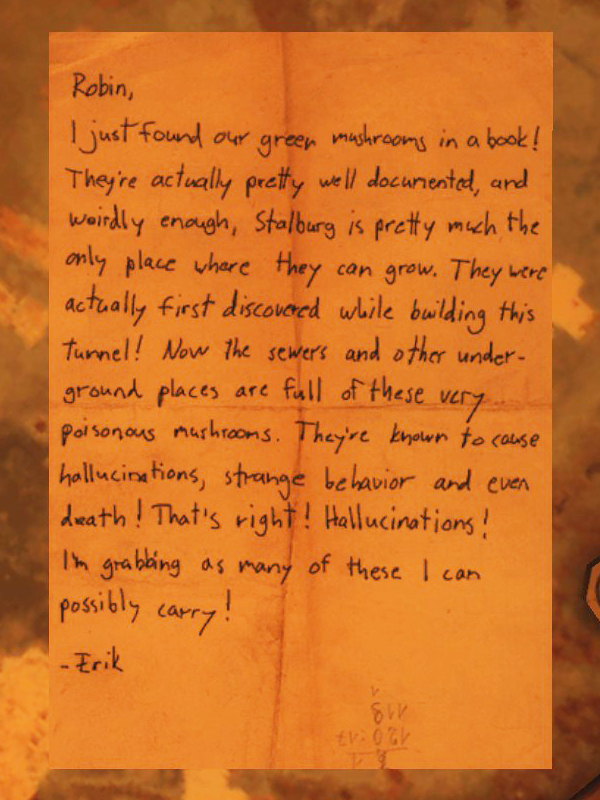 Robin,
I just found our green mushrooms in a book!
They're actually pretty well documented, and
weirdly enough, Stalburg is pretty much the
only place where they can grow. They were
actually first discovered while building this
tunnel! Now the sewers and other under-
ground places are full of these very
poisonous mushrooms. They're known to cause
hallucinations, strange behavior and even
death! That's right! Hallucinations!
I'm grabbing as many of these I can
possibly carry!
-Erik